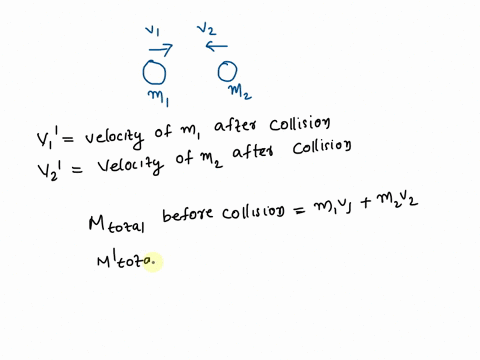 v₁ v₂
m₁ m₂
v₁' = velocity of m₁ after collision
v₂' = velocity of m₂ after collision
M total before collision = m₁v₁ + m₂v₂
M' tota